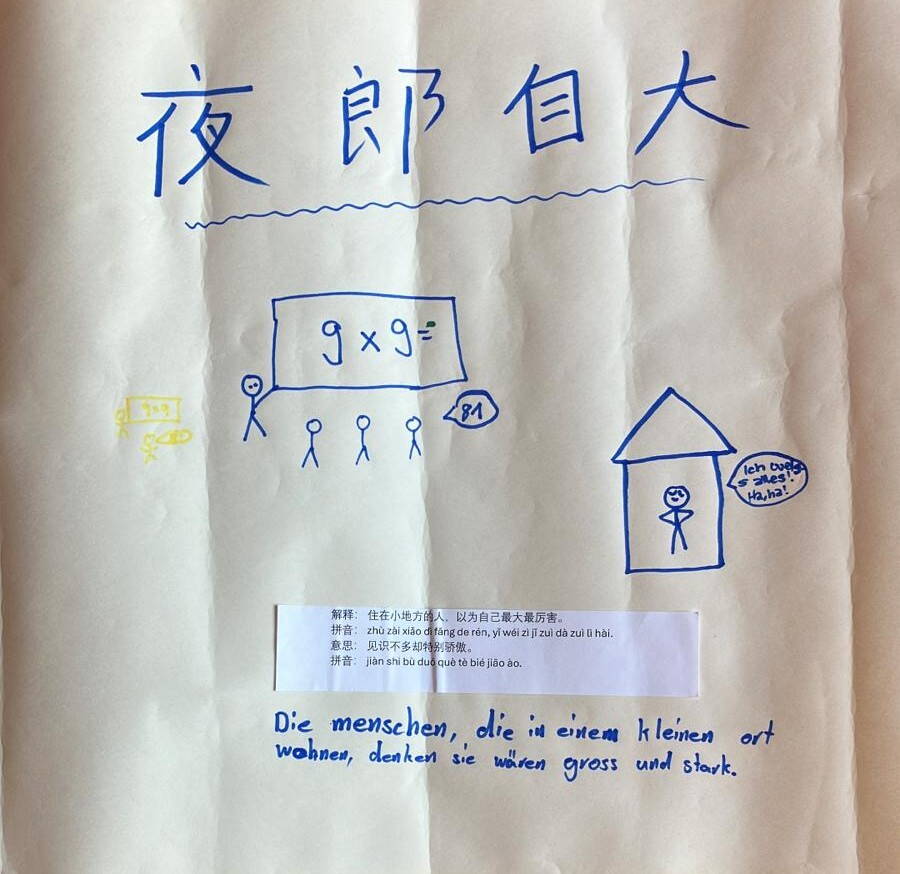 夜郎自大
9 x 9 =
9x9
81
Ich weis
s alles!
Ha, ha!
解释: 住在小地方的人，以为自己最大最厉害。
拼音: zhù zài xiǎo dì fāng de rén, yǐ wéi zì jǐ zuì dà zuì lì hài.
意思: 见识不多却特别骄傲。
拼音: jiàn shi bù duō què tè bié jiāo ào.
Die menschen, die in einem kleinen ort
wohnen, denken sie wären gross und stark.